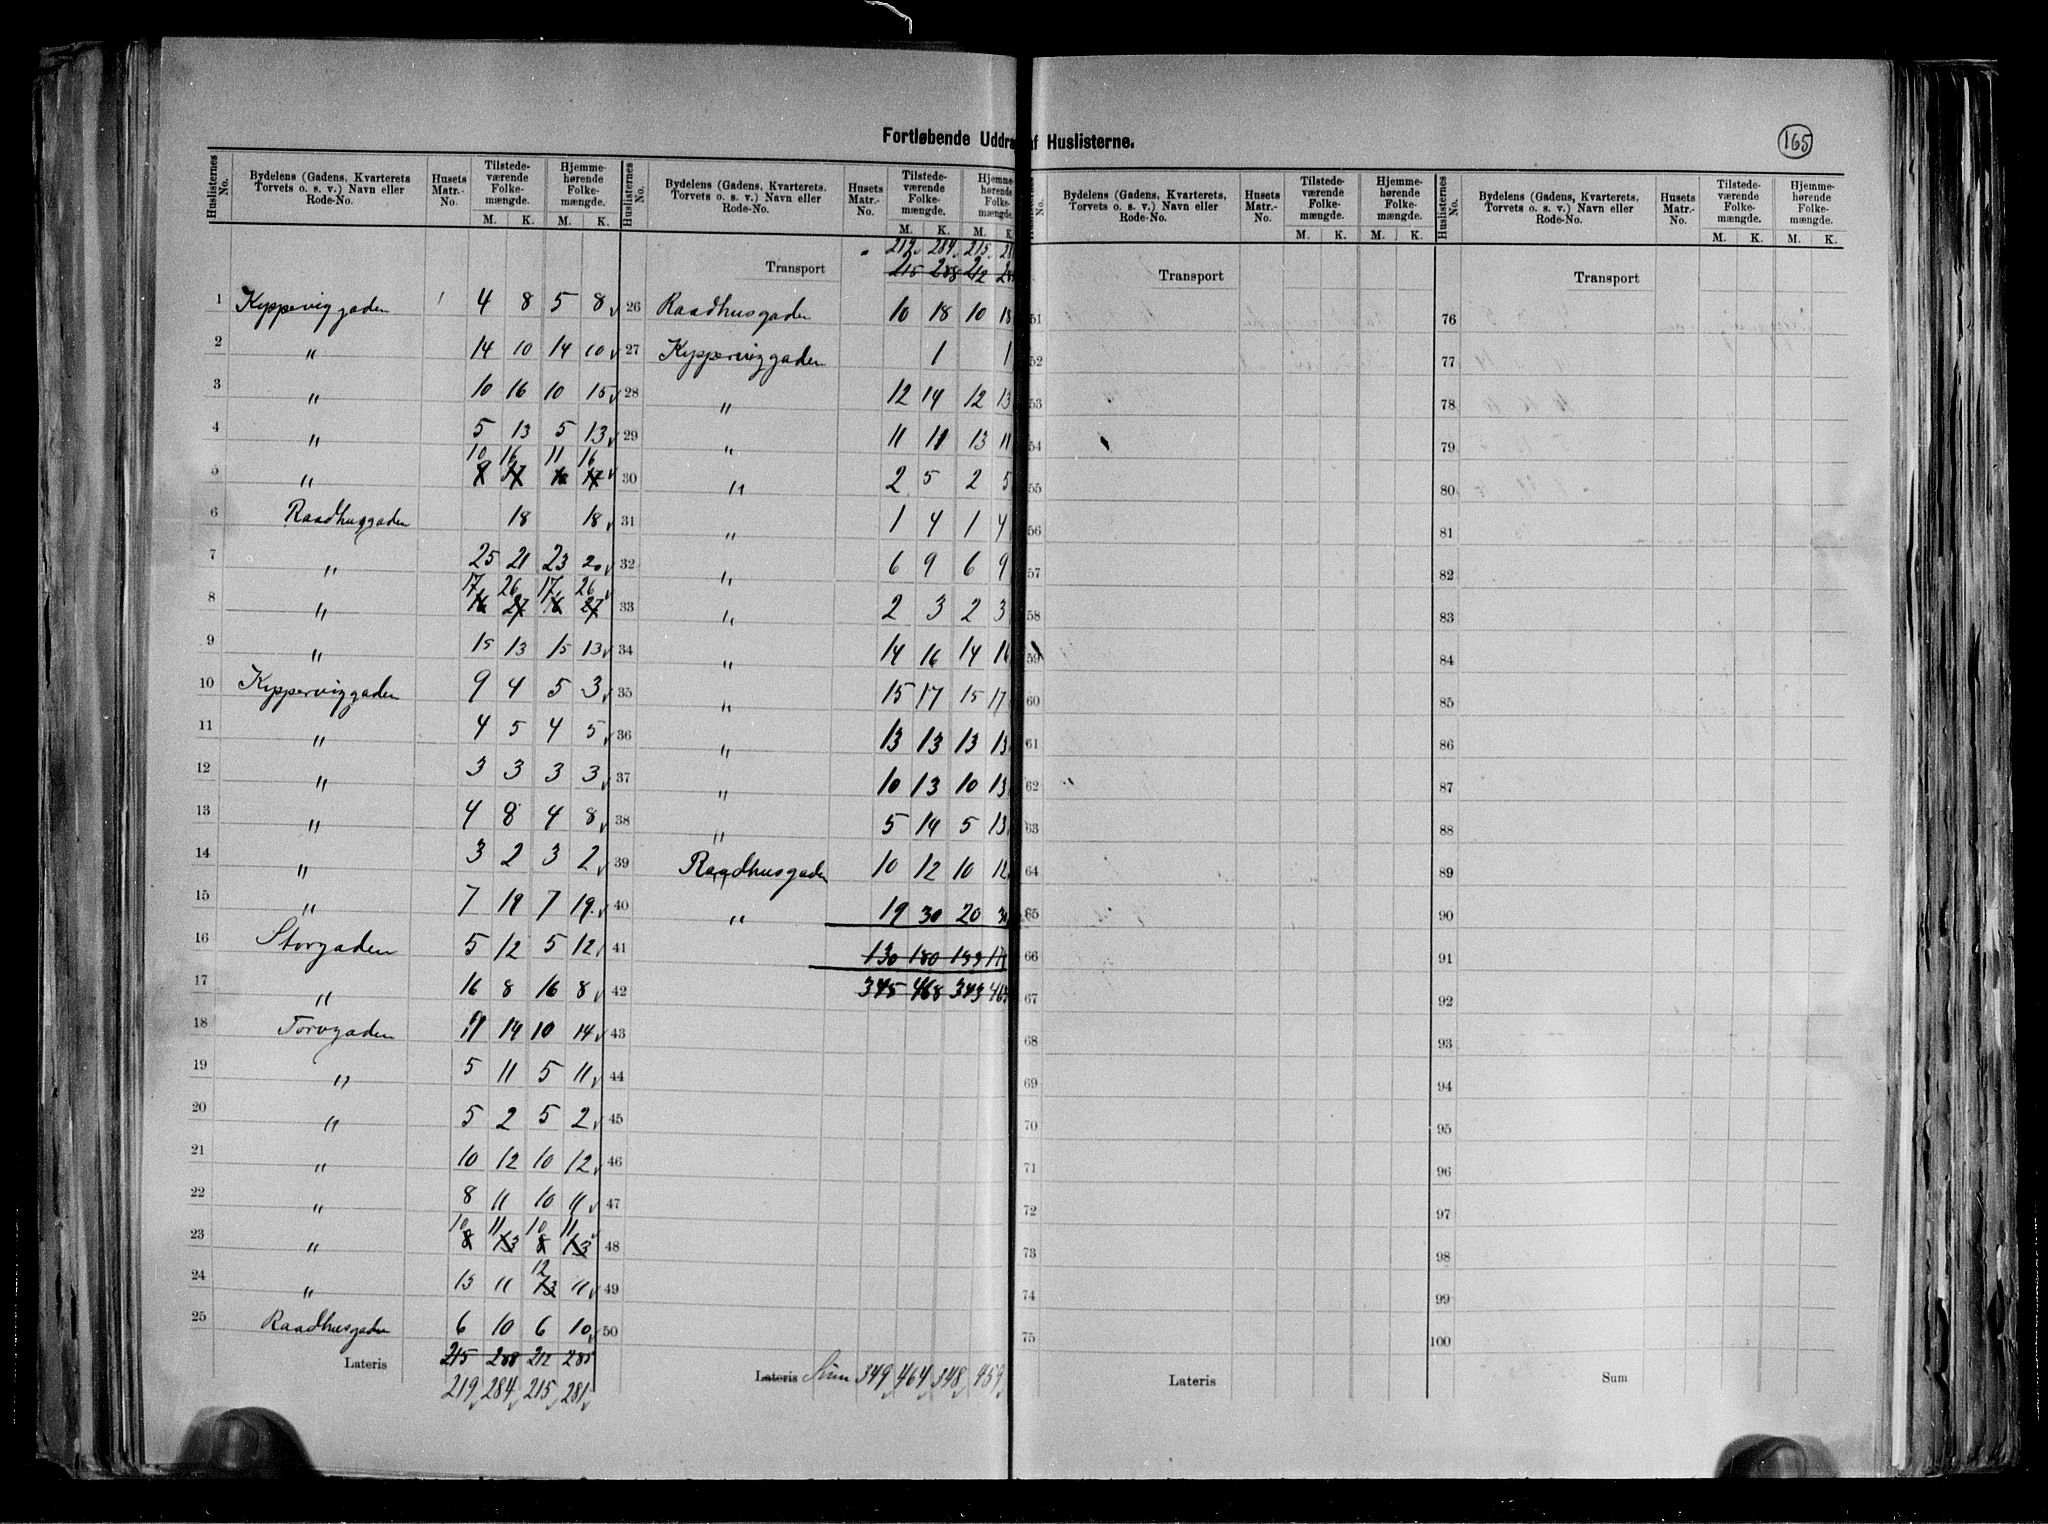 Fortløbende Uddra af Huslisterne.
165
Huslisternes No. | Bydelens (Gadens, Kvarterets Torvets o. s. v.) Navn eller Rode-No. | Husets Matr.-No. | Tilstedeværende Folkemængde. M. K. | Hjemmehørende Folkemængde. M. K.
1 Kypperviggaden 4 8 5 8
2 " 14 10 14 10
3 " 10 16 10 15
4 " 5 13 5 13
5 " 10 16 11 16
6 Raadhuggaden 18 18
7 " 25 21 23 20
8 " 17 26 17 26
9 " 15 13 15 13
10 Kypperviggaden 9 4 5 3
11 " 4 5 4 5
12 " 3 3 3 3
13 " 4 8 4 8
14 " 3 2 3 2
15 " 7 19 7 19
16 Storgaden 5 12 5 12
17 " 16 8 16 8
18 Torvgaden 14 10 14
19 " 5 11 5 11
20 " 5 2 5 2
21 " 10 12 10 12
22 " 8 11 10 11
23 " 10 11 10 11
8 13 8 13
24 " 13 11 12 11
25 Raadhusgaden 6 10 6 10
Lateris 215 288 212 285
219 284 215 281
Huslisternes No. | Bydelens (Gadens, Kvarterets, Torvets o. s. v.) Navn eller Rode-No. | Husets Matr.-No. | Tilstedeværende Folkemængde. M. K. | Hjemmehørende Folkemængde. M. K.
219 284 215 28
Transport 215 288 212 28
26 Raadhusgaden 10 18 10 18
27 Kypperviggaden 1 1
28 " 12 14 12 13
29 " 11 11 13 11
30 " 2 5 2 5
31 " 1 4 1 4
32 " 6 9 6 9
33 " 2 3 2 3
34 " 14 16 14 16
35 " 15 17 15 17
36 " 13 13 13 13
37 " 10 13 10 13
38 " 5 14 5 13
39 Raadhusgaden 10 12 10 12
40 " 19 30 20 30
41 130 180 133
42 345 468 343
43
44
45
46
47
48
49
50
Lateris Sum 349 464 348 459
No. | Bydelens (Gadens, Kvarterets, Torvets o. s. v.) Navn eller Rode-No. | Husets Matr.-No. | Tilstedeværende Folkemængde. M. K. | Hjemmehørende Folkemængde. M. K.
Transport
51
52
53
54
55
56
57
58
59
60
61
62
63
64
65
66
67
68
69
70
71
72
73
74
75
Lateris
Huslisternes No. | Bydelens (Gadens, Kvarterets, Torvets o. s. v.) Navn eller Rode-No. | Husets Matr.-No. | Tilstedeværende Folkemængde. M. K. | Hjemmehørende Folkemængde. M. K.
Transport
76
77
78
79
80
81
82
83
84
85
86
87
88
89
90
91
92
93
94
95
96
97
98
99
100
Sum